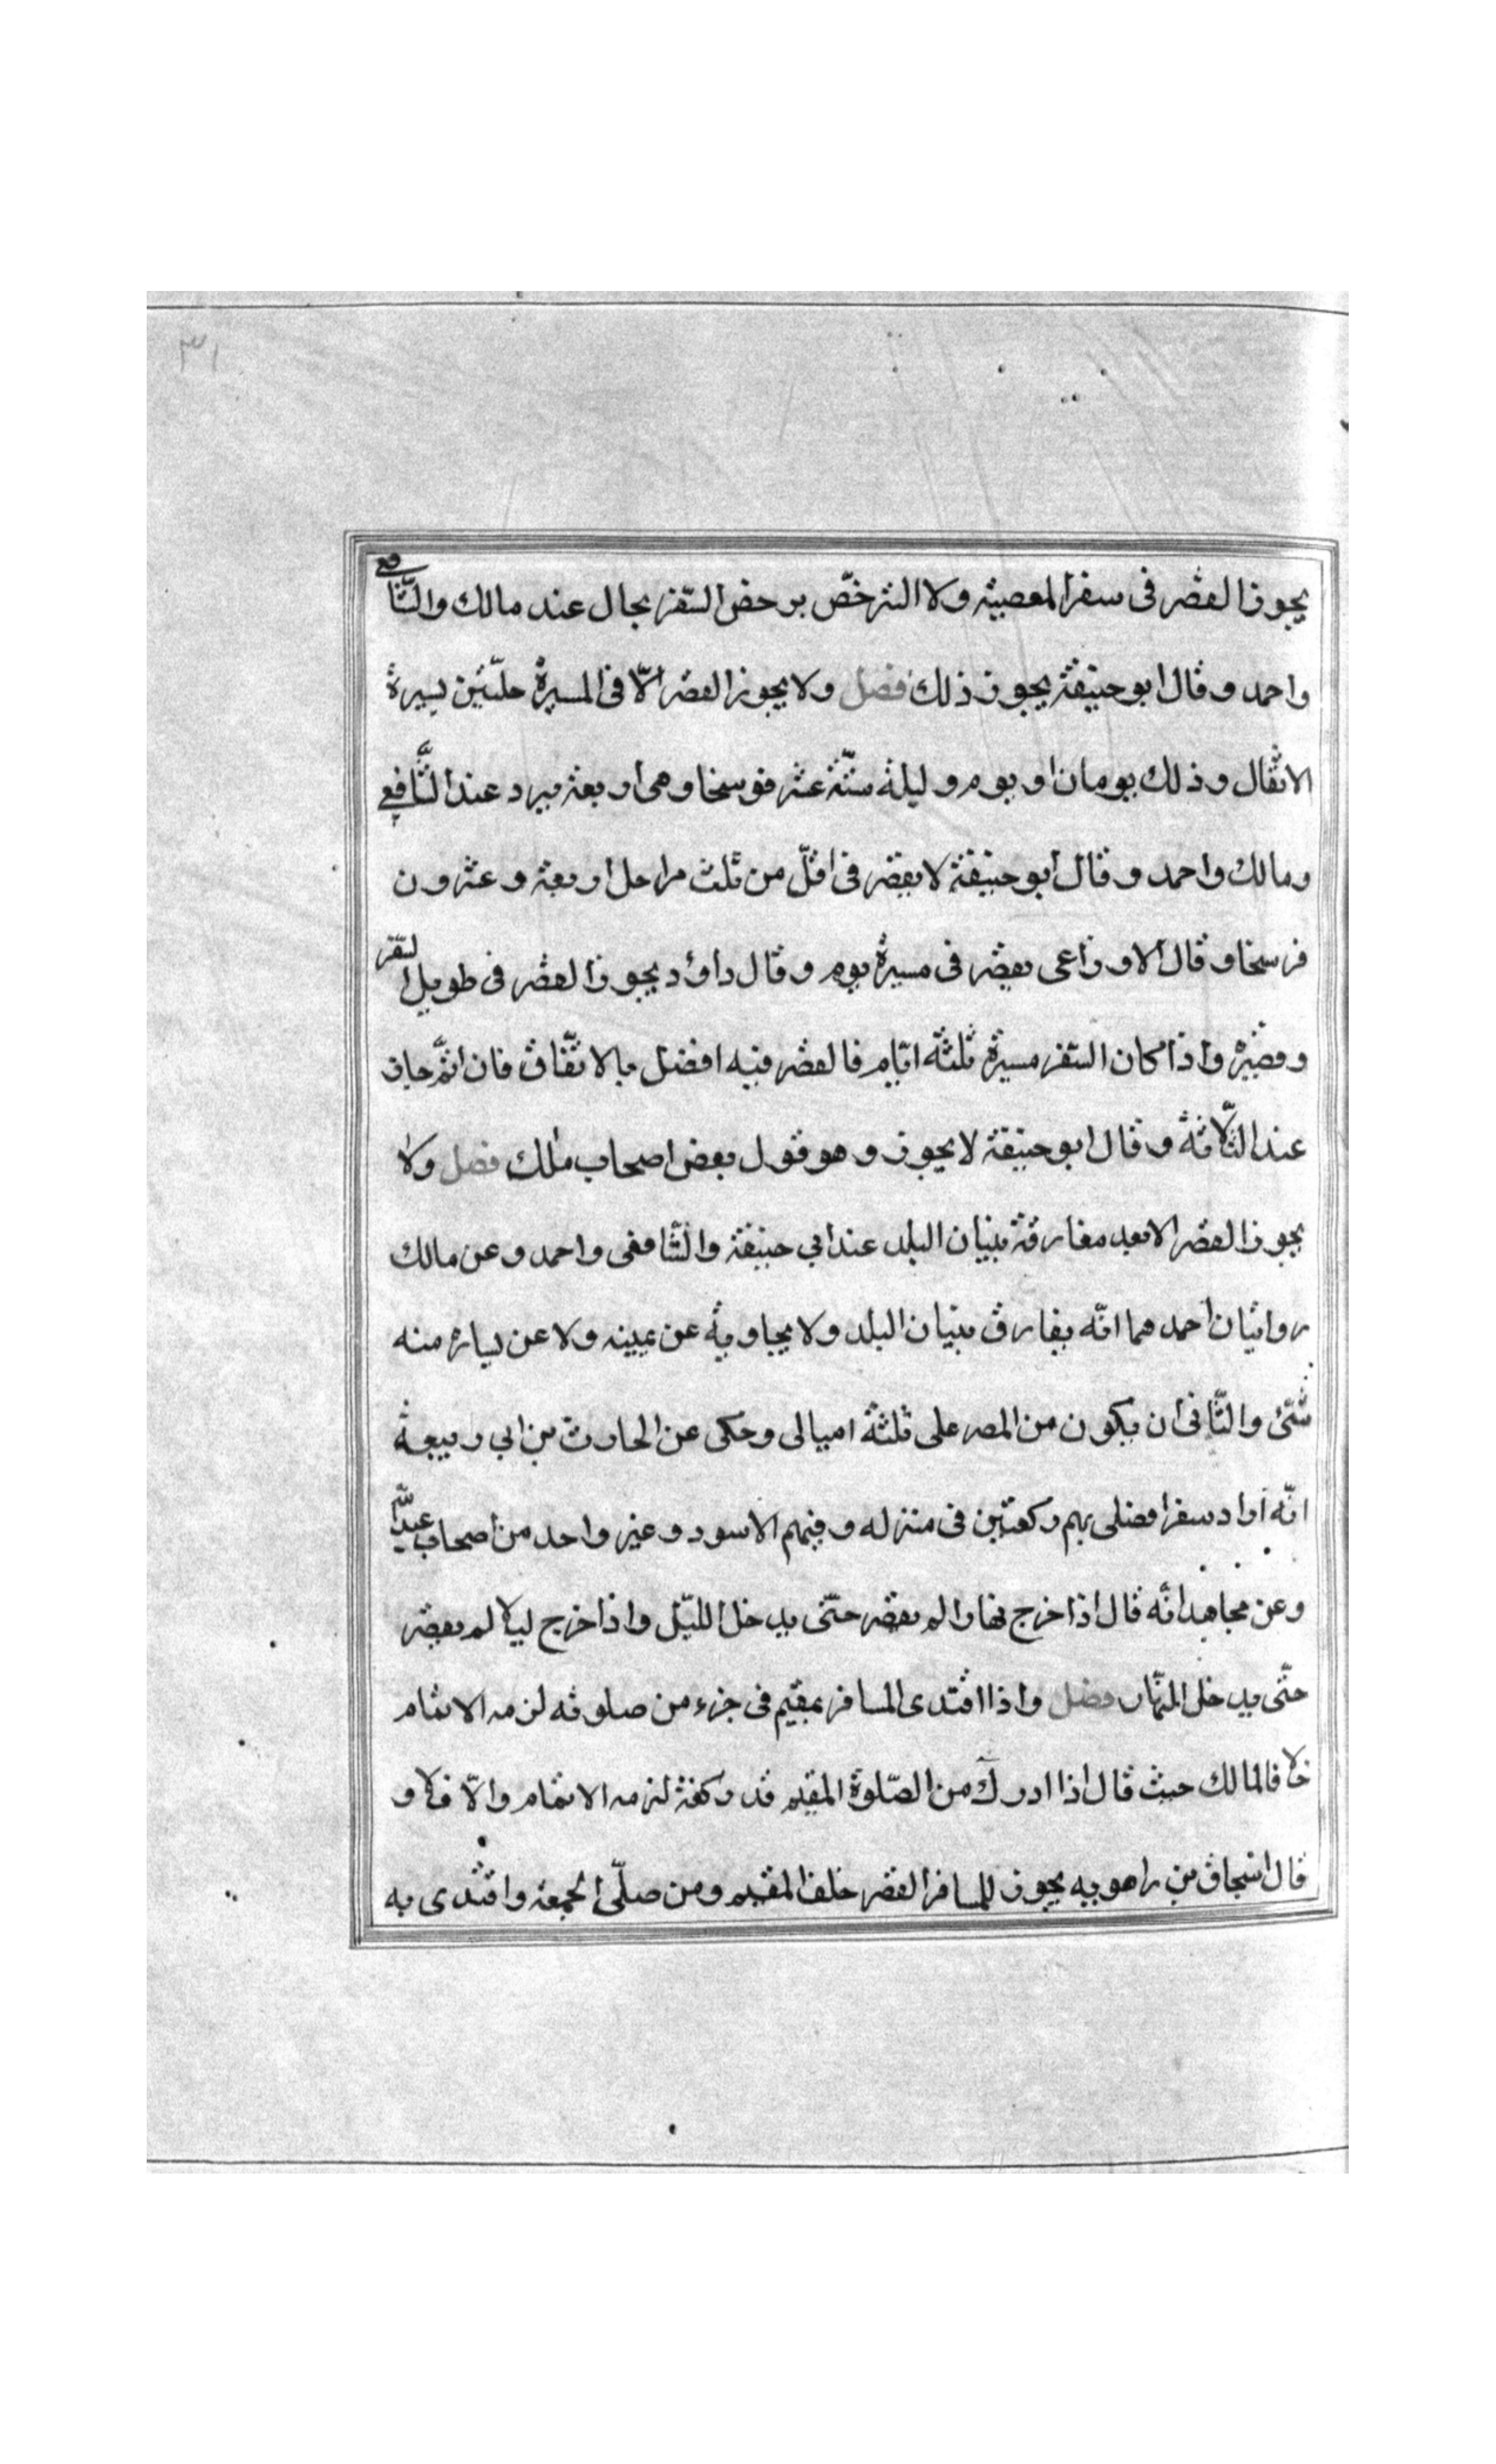 ٣١
يجوز القصر فى سفر المعصية ولا الترخّص برخص السّفر بحال عند مالك والشّافعى
واحمد وقال ابو حنيفة يجوز ذلك فصل ولا يجوز القصر الّا فى المسيرة حلتين بسيرة
الاثقال وذلك يومان او يوم وليلة ستّة عشر فرسخا وهى اربعة برد عند الشّافعي
ومالك واحمد وقال ابو حنيفة لا يقصر فى اقلّ من ثلث مراحل اربعة وعشرون
فرسخا وقال الاوزاعى يقصر فى مسيرة يوم وقال داؤد يجوز القصر فى طويل السّفر
وقصيره واذا كان السّفر مسيرة ثلثة ايّام فالقصر فيه افضل بالاتّفاق فان اتمّ جاز
عند الثّلاثة وقال ابو حنيفة لا يجوز وهو قول بعض اصحاب مٰلك فصل ولا
يجوز القصر الا بعد مفارقة بنيان البلد عند ابي حنيفة والشّافعى واحمد وعن مالك
روايتان احمدهما انّه يفارق بنيان البلد ولا يجاوبه عن يمينه ولا عن يساره منه
شئ والثّانى ان يكون من المصر على ثلثة اميالى وحكى عن الحارث بن ابي ربيعة
انّه اراد سفرا فصلى بهم ركعتين فى منزله وفيهم الاسود وغير واحد من اصحاب عبد اللّه
وعن مجاهد انّه قال اذا خرج نهارا لم يقصر حتّى يدخل اللّيل واذا خرج ليلا لم يقصر
حتّى يدخل النّهار فصل واذا اقتدى المسافر بمقيم فى جزء من صلوته لزمه الاتمام
خلافا لمالك حيث قال اذا ادرك من الصّلوة المقيم قدر ركعة لزمه الاتمام والّا فلا و
قال اسحاق بن راهويه يجوز للمسافر القصر خلف المقيم ومن صلّى الجمعة واقتدى به